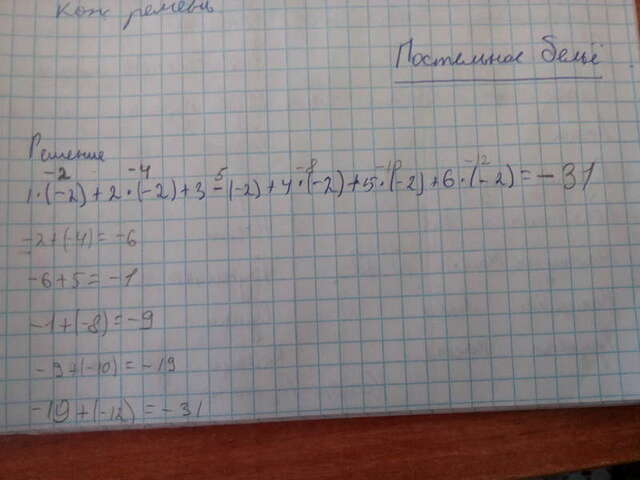 Кож ремень
Постельное бельё
Решение
-2 -4 5 -8 -10 -12
1·(-2)+2·(-2)+3-(-2)+4·(-2)+5·(-2)+6·(-2)=-31
-2+(-4)=-6
-6+5=-1
-1+(-8)=-9
-9+(-10)=-19
-19+(-12)=-31